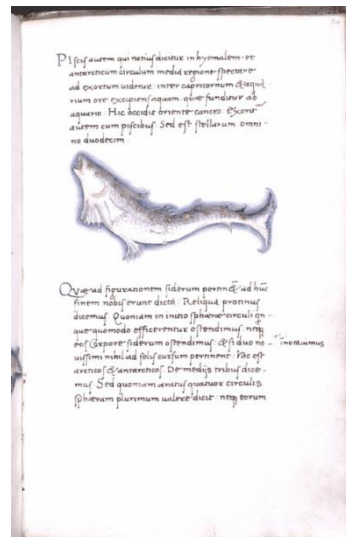 Piscis autem qui notius dicitur in hyemalem et
antarcticum circulum media regione spectare
ad exortum uidetur inter capricornum &
rium ore excipiens aquam quae funditur ab
aquario. Hic occidit oriente cancro. Exorit~
autem cum piscibus. Sed est stellarum omni-
no duodecim.
Quae ad figurationem siderum pertin& ad huc
finem nobis erunt dicta. Reliqua protinus
dicemus. Quoniam in initio sphaerae circuli qn-
que quomodo efficerentur ostendimus neq;
eos corpore siderum ostendimus & si duo no-
uissimi nihil ad solis cursum pertinent. hoc est
arcticos & antarcticos. De medijs tribus dice-
mus Sed quoniam aratus quatuor circulis
sphaeram plurimum ualere dicit neq; eorum